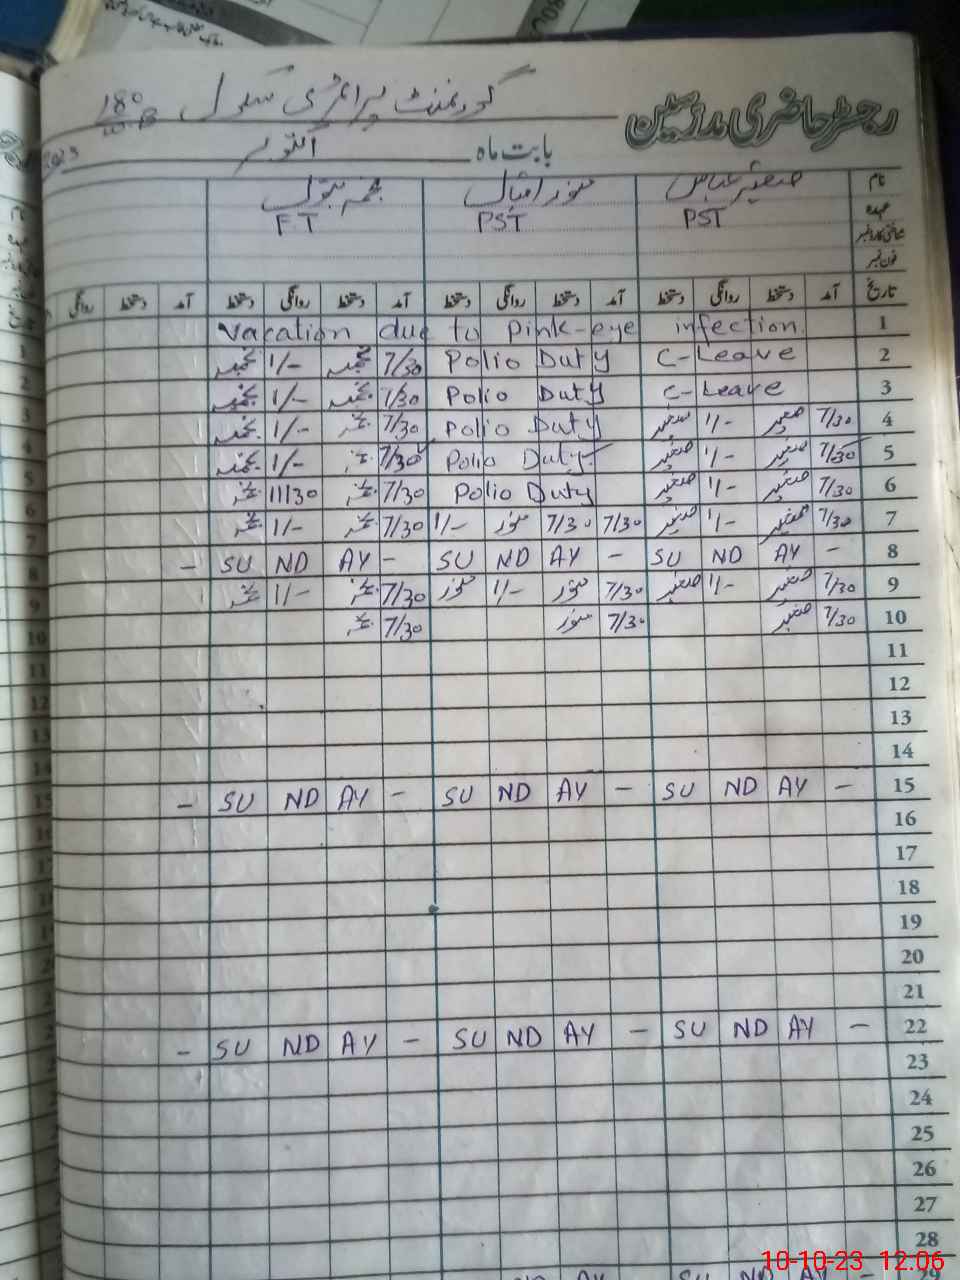 رجسٹر حاضری مدرسین
گورنمنٹ پرائمری سکول 180
بابت ماہ اکتوبر 2023
نام صغیر عباس منور اقبال نجمہ بتول
عہدہ PST PST FT
شناختی کارڈ نمبر
فون نمبر
تاریخ آمد دستخط روانگی دستخط آمد دستخط روانگی دستخط آمد دستخط روانگی دستخط آمد دستخط روانگی
1 vacation due to Pink-eye infection.
2 C-Leave Polio Duty 7/30 نجمہ 1/- نجمہ
3 C-Leave Polio Duty 7/30 نجمہ 1/- نجمہ
4 7/30 صغیر 1/- صغیر Polio Duty 7/30 نجمہ 1/- نجمہ
5 7/30 صغیر 1/- صغیر Polio Duty 7/30 نجمہ 1/- نجمہ
6 7/30 صغیر 1/- صغیر Polio Duty 7/30 نجمہ 11/30 نجمہ
7 7/30 صغیر 1/- صغیر 7/30 7/30 منور 1/- 7/30 نجمہ 1/- نجمہ
8 SU ND AY - SU ND AY - SU ND AY - -
9 7/30 صغیر 1/- صغیر 7/30 منور 1/- منور 7/30 نجمہ 1/- نجمہ
10 7/30 صغیر 7/30 منور 7/30 نجمہ
11
12
13
14
15 SU ND AY - SU ND AY - SU ND AY - -
16
17
18
19
20
21
22 SU ND AY - SU ND AY - SU ND AY - -
23
24
25
26
27
28
29
10-10-23 12.06